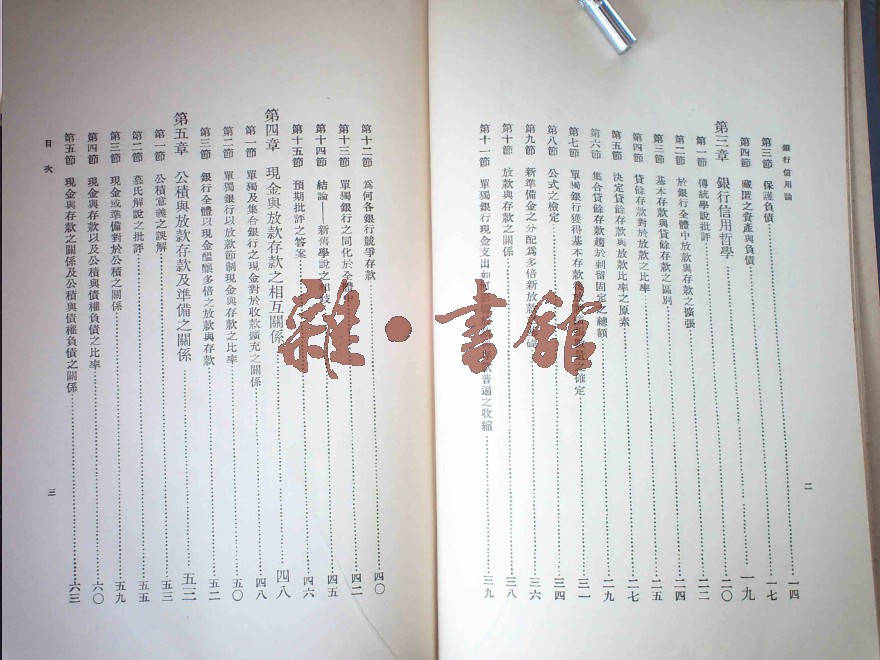 銀行信用論
第三節 保護負債 一四
第四節 藏匿之資產與負債 一七
第三章 銀行信用哲學 一九
第一節 傳統學說批評 二〇
第二節 於銀行全體中放款與存款之擴張 二二
第三節 基本存款與貸餘存款之區別 二四
第四節 貸餘存款對於放款之比率 二五
第五節 決定貸餘存款與放款比率之原素 二七
第六節 集合貸餘存款趨於剩留固定之總額 二九
第七節 單獨銀行獲得基本存款 確定 三一
第八節 公式之檢定 三四
第九節 新準備金之分配爲多倍新放款 三六
第十節 放款與存款之關係 三八
第十一節 單獨銀行現金支出如何 普遍之收縮 三九
二
第十二節 爲何各銀行競爭存款 四〇
第十三節 單獨銀行之同化於全體 四二
第十四節 結論——新舊學說之 四五
第十五節 預期批評之答案 四六
第四章 現金與放款存款之相互關係 四八
第一節 單獨及集合銀行之現金對於收款擴充之關係 四八
第二節 單獨銀行以放款節制現金與存款之比率 五〇
第三節 銀行全體以現金醞釀多倍之放款與存款 五二
第五章 公積與放款存款及準備之關係 五三
第一節 公積意義之誤解 五三
第二節 慕氏解說之批評 五五
第三節 現金或準備對於公積之關係 五九
第四節 現金與存款以及公積與債權負債之比率 六〇
第五節 現金與存款之關係及公積與債權負債之關係 六三
目次
三
雜·書館